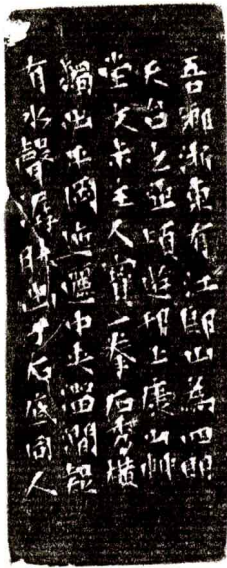 吾鄉浙東有江郎山為四明
天台之亞頃遊邗上康山艸
堂主人寶一拳石秀橫
出平岡迤邐中夾溜間
有水聲潺出于石底同人